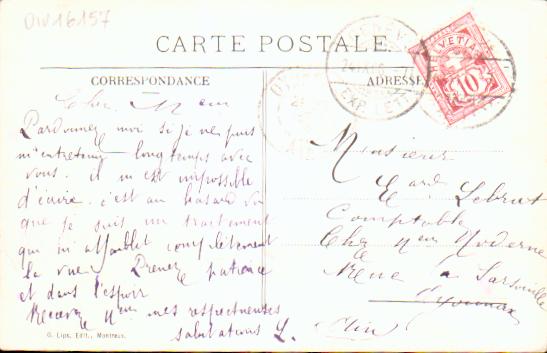 DIV16157
CARTE POSTALE.
CORRESPONDANCE
ADRESSE
HELVETIA
10
GENÈVE
EXP. LET
Cher Mr
Pardonnez moi si je ne puis
m'entretenir longtemps avec
vous. il m'est impossible
d'écrire. c'est au hasard
que je suis un traitement
qui m'affaiblet complètement
la vue. Prenez patience
et dans l'espoir
Recevez mes respectueuses
salutations L.
Monsieur
Ed. Lebrut
Comptable
Moderne
à
Oyonnax
(Ain)
G. Lips, Edit., Montreux.